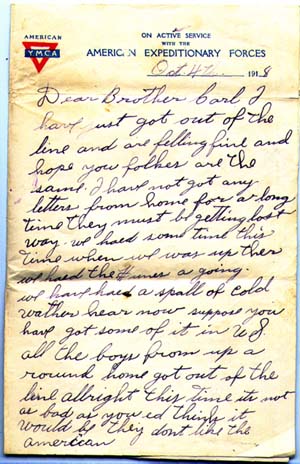 AMERICAN
YMCA
ON ACTIVE SERVICE
WITH THE
AMERICAN EXPEDITIONARY FORCES
Oct 4th 1918
Dear Brother Carl I
have just got out of the
line and are felling fine and
hope you folkes are the
same. I have not got any
letters from home for a long
time they must be getting lost
way. we haed some time this
time when we was up ther
we haed the Hunes a going.
we have haed a spall of cold
wather hear now suppose you
have got some of it in
all the boys from up a
round home got out of the
line allbright this time its not
as bad as you ed think it
would be they dont like the
american